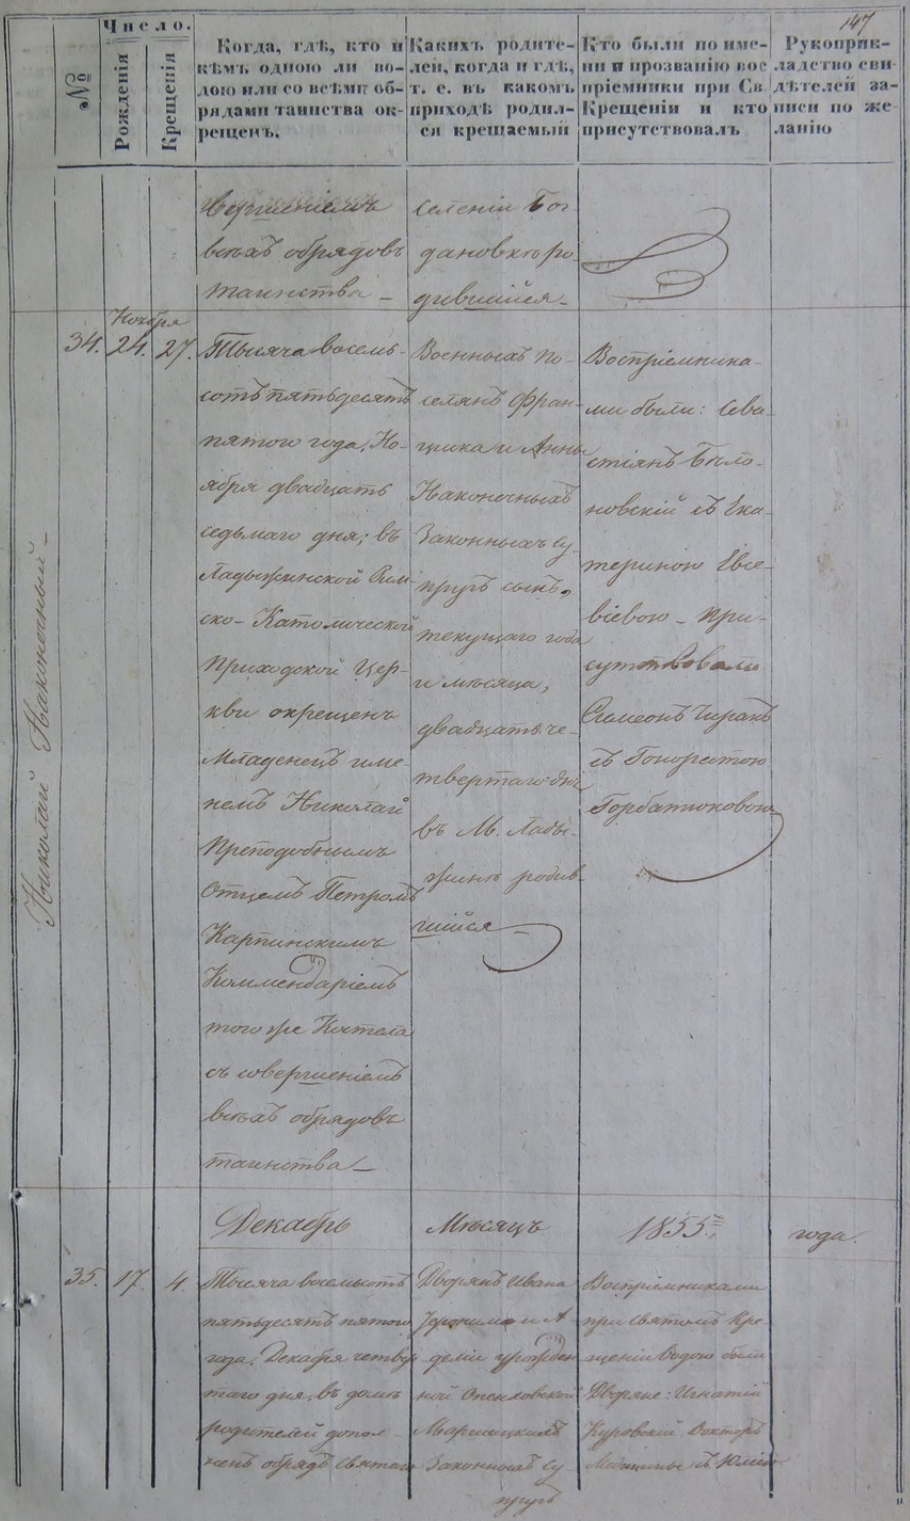 147
№
Число.
Рожденія
Крещенія
Когда, гдѣ, кто и
кѣмъ одною ли во-
дою или со всѣми об-
рядами таинства ок-
рещенъ.
Какихъ родите-
лей, когда и гдѣ,
т. е. въ какомъ
приходѣ родил-
ся крещаемый
Кто были по име-
ни и прозванію вос
пріемники при Св.
Крещеніи и кто
присутствовалъ
Рукоприк-
ладство сви-
дѣтелей за-
писи по же-
ланію
вершеніемъ
всѣхъ обрядовъ
таинства –
селеніи Бог-
дановкѣ ро-
дившійся –
Николай Наконечный –
Ноября
34. 24. 27.
Тысяча восемь-
сотъ пятьдесятъ
пятого года, Но-
ября двадцать
седьмаго дня; въ
Ладыжинской Рим-
ско-Католической
Приходской Цер-
кви окрещенъ
Младенецъ име-
немъ Николай
Преподобнымъ
Отцемъ Петромъ
Карпинскимъ
Коммендаріемъ
того же Костела
съ совершеніемъ
всѣхъ обрядовъ
таинства –
Военныхъ по-
селянъ Фран-
цишка и Анны
Наконечныхъ
Законныхъ су-
пругъ сынъ,
текущаго года
и мѣсяца,
двадцать че-
твертаго дня
въ М. Лады-
жинѣ родив-
шійся –
Воспріемника-
ми были: Сева-
стіянъ Бѣло-
новскій съ Ека-
териною Евсе-
віевою – при-
сутствовали
Симеонъ Чиракъ
съ Гоноратою
Горбатюковою
Декабрь Мѣсяцъ 1855 года.
35. 17. 4.
Тысяча восемьсотъ
пятьдесятъ пятого
года, Декабря четвер
таго дня, въ домѣ
родителей допол-
ненъ обрядъ святаго
Дворянъ Ивана
Іеронима и А
деліи урожден
ной Опенховской
Маршицкихъ
Законныхъ су-
пругъ
Воспріемниками
при святомъ Кре
щеніи водою были
Дворяне: Игнатій
Куровскій Докторъ
Медицины съ Юліею